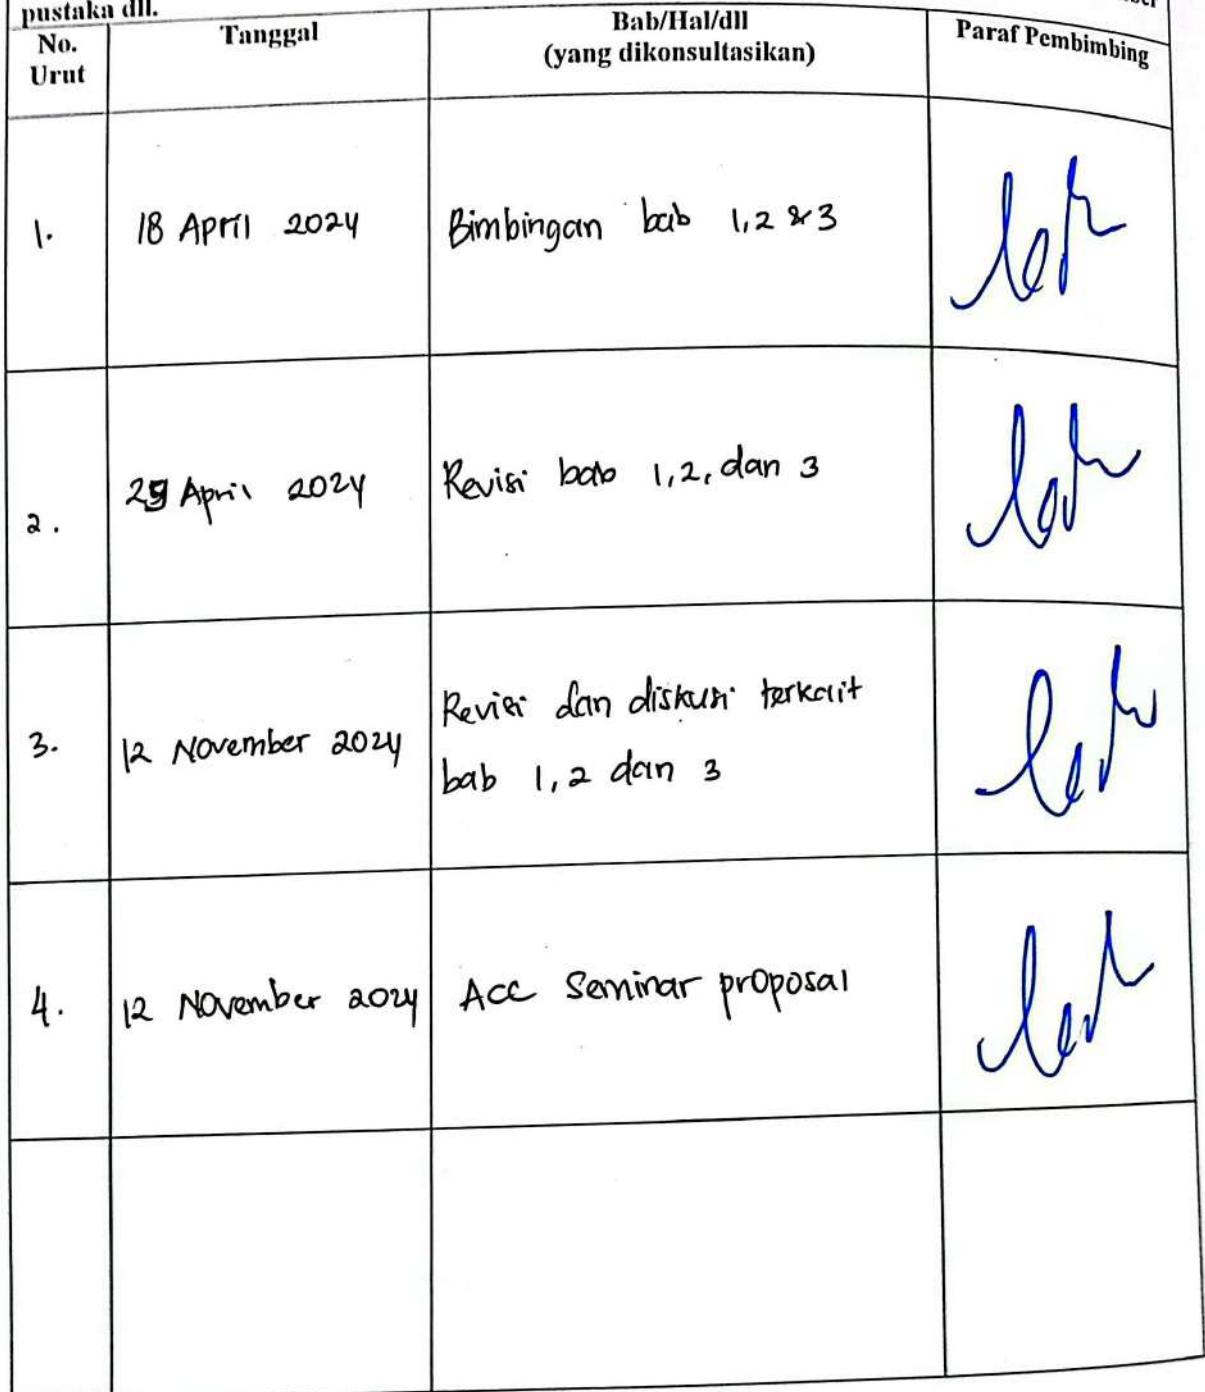 pustaka dll.
No.
Urut
Tanggal
Bab/Hal/dll
(yang dikonsultasikan)
Paraf Pembimbing
1.
18 April 2024
Bimbingan bab 1,2 & 3
2.
April 2024
Revisi bab 1,2, dan 3
3.
12 November 2024
Revisi dan diskusi terkait
bab 1,2 dan 3
4.
12 November 2024
Acc Seminar proposal